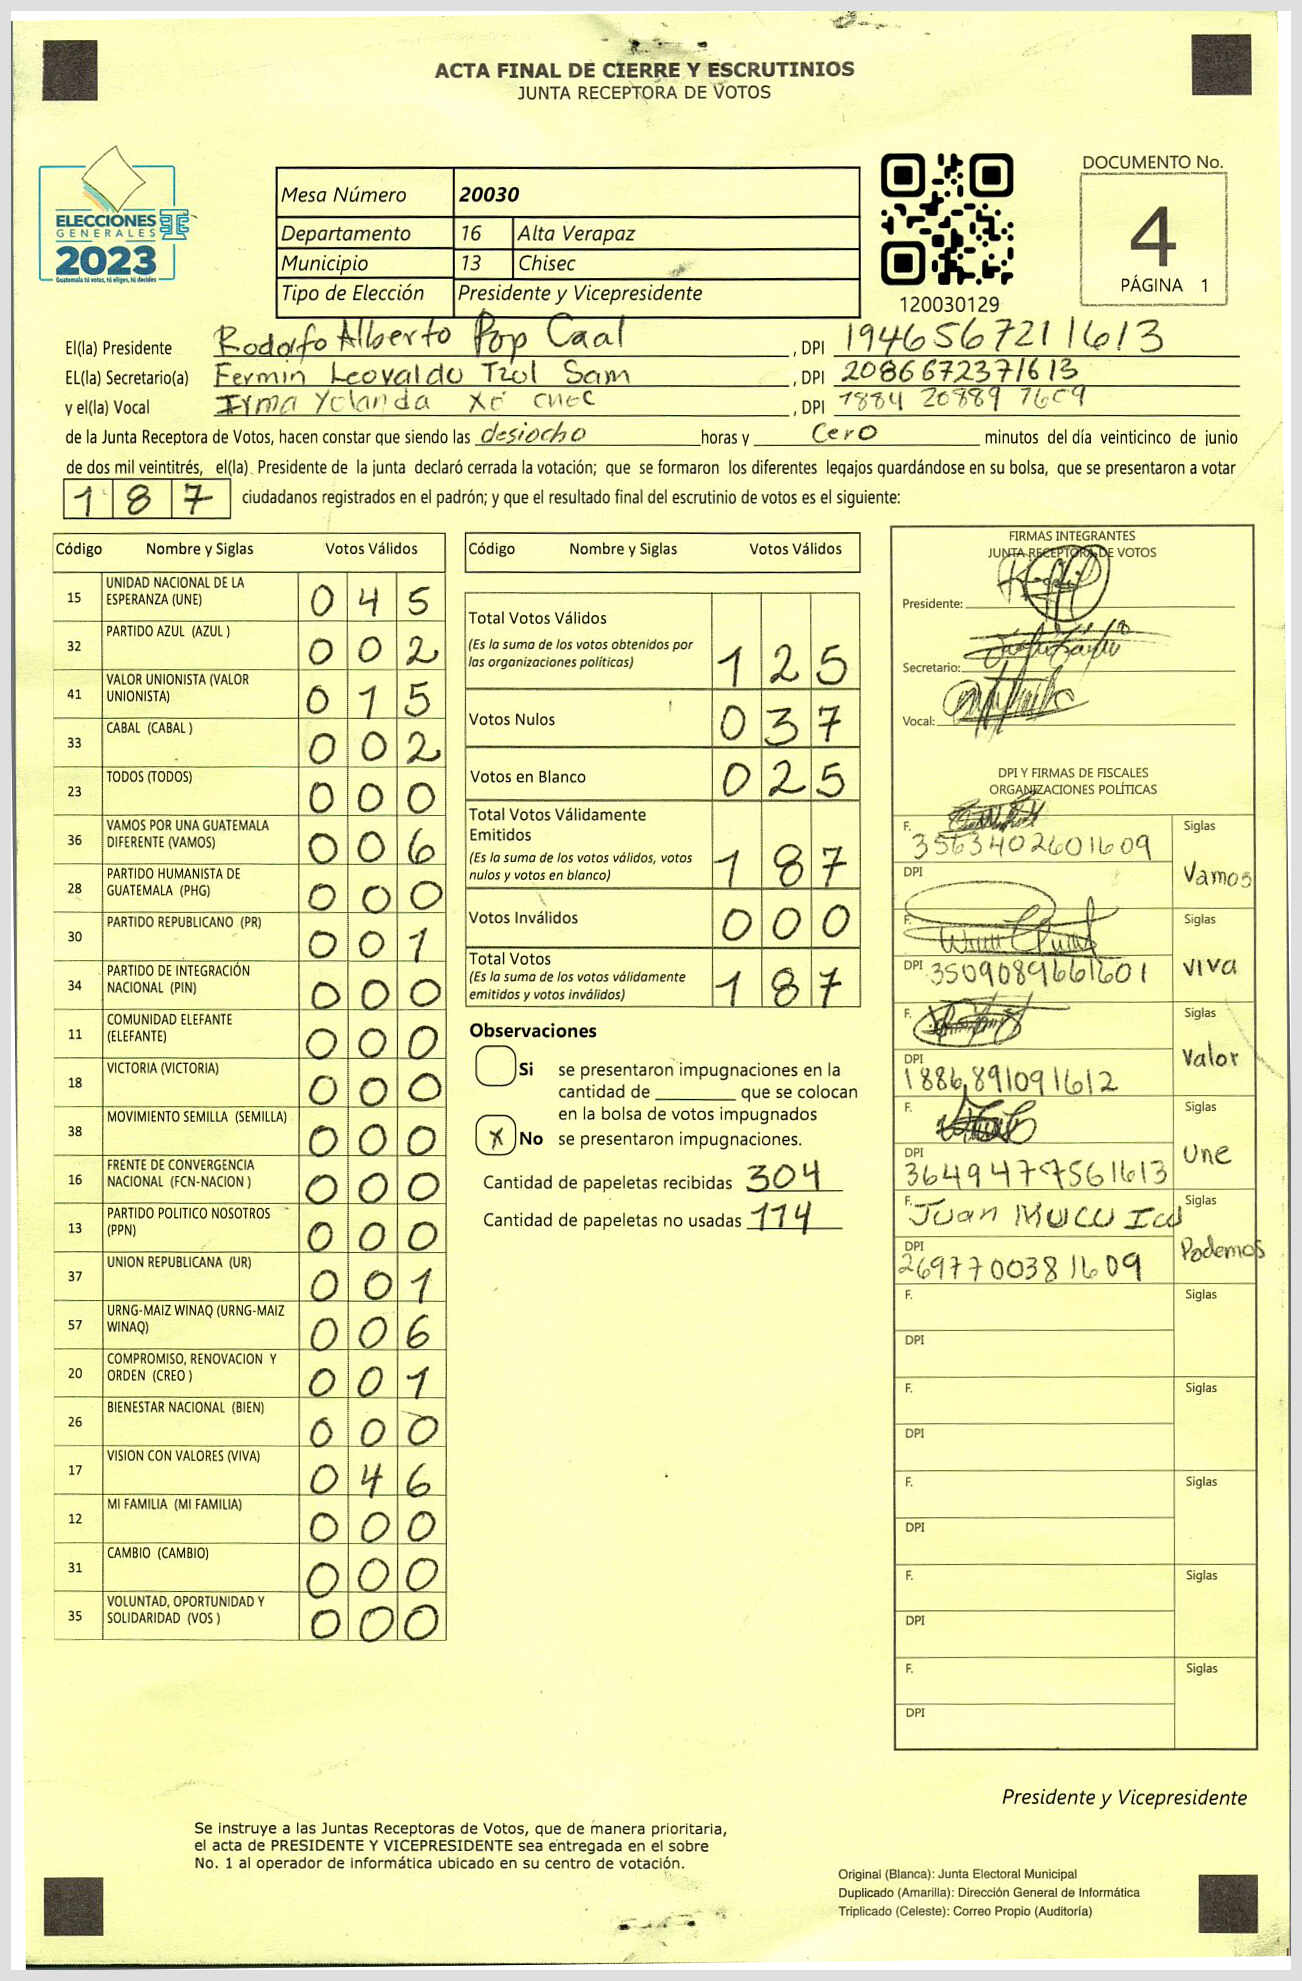 ACTA FINAL DE CIERRE Y ESCRUTINIOS
JUNTA RECEPTORA DE VOTOS
ELECCIONES
GENERALES
2023
Guatemala tú votas, tú eliges, tú decides
Mesa Número 20030
Departamento 16 Alta Verapaz
Municipio 13 Chisec
Tipo de Elección Presidente y Vicepresidente
120030129
DOCUMENTO No.
4
PÁGINA 1
El(la) Presidente Rodolfo Alberto Pop Caal , DPI 1946567211613
EL(la) Secretario(a) Fermin Leovaldo Tzol Sam , DPI 2086672371613
y el(la) Vocal Irma Yolanda , DPI 1884 20889 1609
de la Junta Receptora de Votos, hacen constar que siendo las desiocho horas y cero minutos del día veinticinco de junio
de dos mil veintitrés, el(la). Presidente de la junta declaró cerrada la votación; que se formaron los diferentes legajos guardándose en su bolsa, que se presentaron a votar
187 ciudadanos registrados en el padrón; y que el resultado final del escrutinio de votos es el siguiente:
Código Nombre y Siglas Votos Válidos
15 UNIDAD NACIONAL DE LA
ESPERANZA (UNE) 045
32 PARTIDO AZUL (AZUL ) 002
41 VALOR UNIONISTA (VALOR
UNIONISTA) 015
33 CABAL (CABAL ) 002
23 TODOS (TODOS) 000
36 VAMOS POR UNA GUATEMALA
DIFERENTE (VAMOS) 006
28 PARTIDO HUMANISTA DE
GUATEMALA (PHG) 000
30 PARTIDO REPUBLICANO (PR) 001
34 PARTIDO DE INTEGRACIÓN
NACIONAL (PIN) 000
11 COMUNIDAD ELEFANTE
(ELEFANTE) 000
18 VICTORIA (VICTORIA) 000
38 MOVIMIENTO SEMILLA (SEMILLA) 000
16 FRENTE DE CONVERGENCIA
NACIONAL (FCN-NACION ) 000
13 PARTIDO POLITICO NOSOTROS
(PPN) 000
37 UNION REPUBLICANA (UR) 001
57 URNG-MAIZ WINAQ (URNG-MAIZ
WINAQ) 006
20 COMPROMISO, RENOVACION Y
ORDEN (CREO ) 001
26 BIENESTAR NACIONAL (BIEN) 000
17 VISION CON VALORES (VIVA) 046
12 MI FAMILIA (MI FAMILIA) 000
31 CAMBIO (CAMBIO) 000
35 VOLUNTAD, OPORTUNIDAD Y
SOLIDARIDAD (VOS ) 000
Código Nombre y Siglas Votos Válidos
Total Votos Válidos
(Es la suma de los votos obtenidos por
las organizaciones políticas) 125
Votos Nulos 037
Votos en Blanco 025
Total Votos Válidamente
Emitidos
(Es la suma de los votos válidos, votos
nulos y votos en blanco) 187
Votos Inválidos 000
Total Votos
(Es la suma de los votos válidamente
emitidos y votos inválidos) 187
Observaciones
Si se presentaron impugnaciones en la
cantidad de ________ que se colocan
en la bolsa de votos impugnados
X No se presentaron impugnaciones.
Cantidad de papeletas recibidas 304
Cantidad de papeletas no usadas 114
FIRMAS INTEGRANTES
JUNTA RECEPTORA DE VOTOS
Presidente:
Secretario:
Vocal:
DPI Y FIRMAS DE FISCALES
ORGANIZACIONES POLÍTICAS
F. Siglas
3563402601609
DPI Vamos
F. Siglas
DPI 3509089661601 VIVA
F. Siglas
DPI Valor
1886891091612
F. Siglas
DPI Une
F. Juan Siglas
DPI Podemos
2697700381609
F. Siglas
DPI
F. Siglas
DPI
F. Siglas
DPI
F. Siglas
DPI
F. Siglas
DPI
Presidente y Vicepresidente
Se instruye a las Juntas Receptoras de Votos, que de manera prioritaria,
el acta de PRESIDENTE Y VICEPRESIDENTE sea entregada en el sobre
No. 1 al operador de informática ubicado en su centro de votación.
Original (Blanca): Junta Electoral Municipal
Duplicado (Amarilla): Dirección General de Informática
Triplicado (Celeste): Correo Propio (Auditoría)